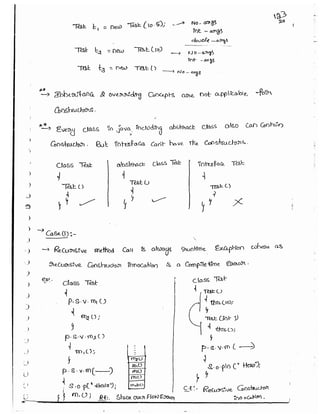 Test t1 = new Test (10.5); → No-args
int-args
double-args
Test t2 = new Test (10) → No-args
int-args
Test t3 = new Test () → No-args
** → Inheritance & overriding Concepts are not applicable for
Constructors.
** → Every class in java including abstract class also can Contain
Constructor. But Interface can't have the Constructors.
class Test
{
Test ()
{
}
abstract class Test
{
Test ()
{
}
Interface Test
{
Test ()
{
}
→ Case(1):-
→ Recursive method Call is always Runtime Exception where as
Recursive Constructor Invocation is a Compiletime Error.
class Test
{
P.S.V.m1()
{
m2();
}
P.S.V.m2()
{
m1();
}
P.S.V.m( )
{
S.o.p("Hello");
m1();
}
R.E: Stack over Flow Error
class Test
{
Test ()
{
this(10);
}
Test (int i)
{
this();
}
P.S.V.m( )
{
S.o.pln("Hello");
}
C.E:- Recursive Constructor
Invocation.